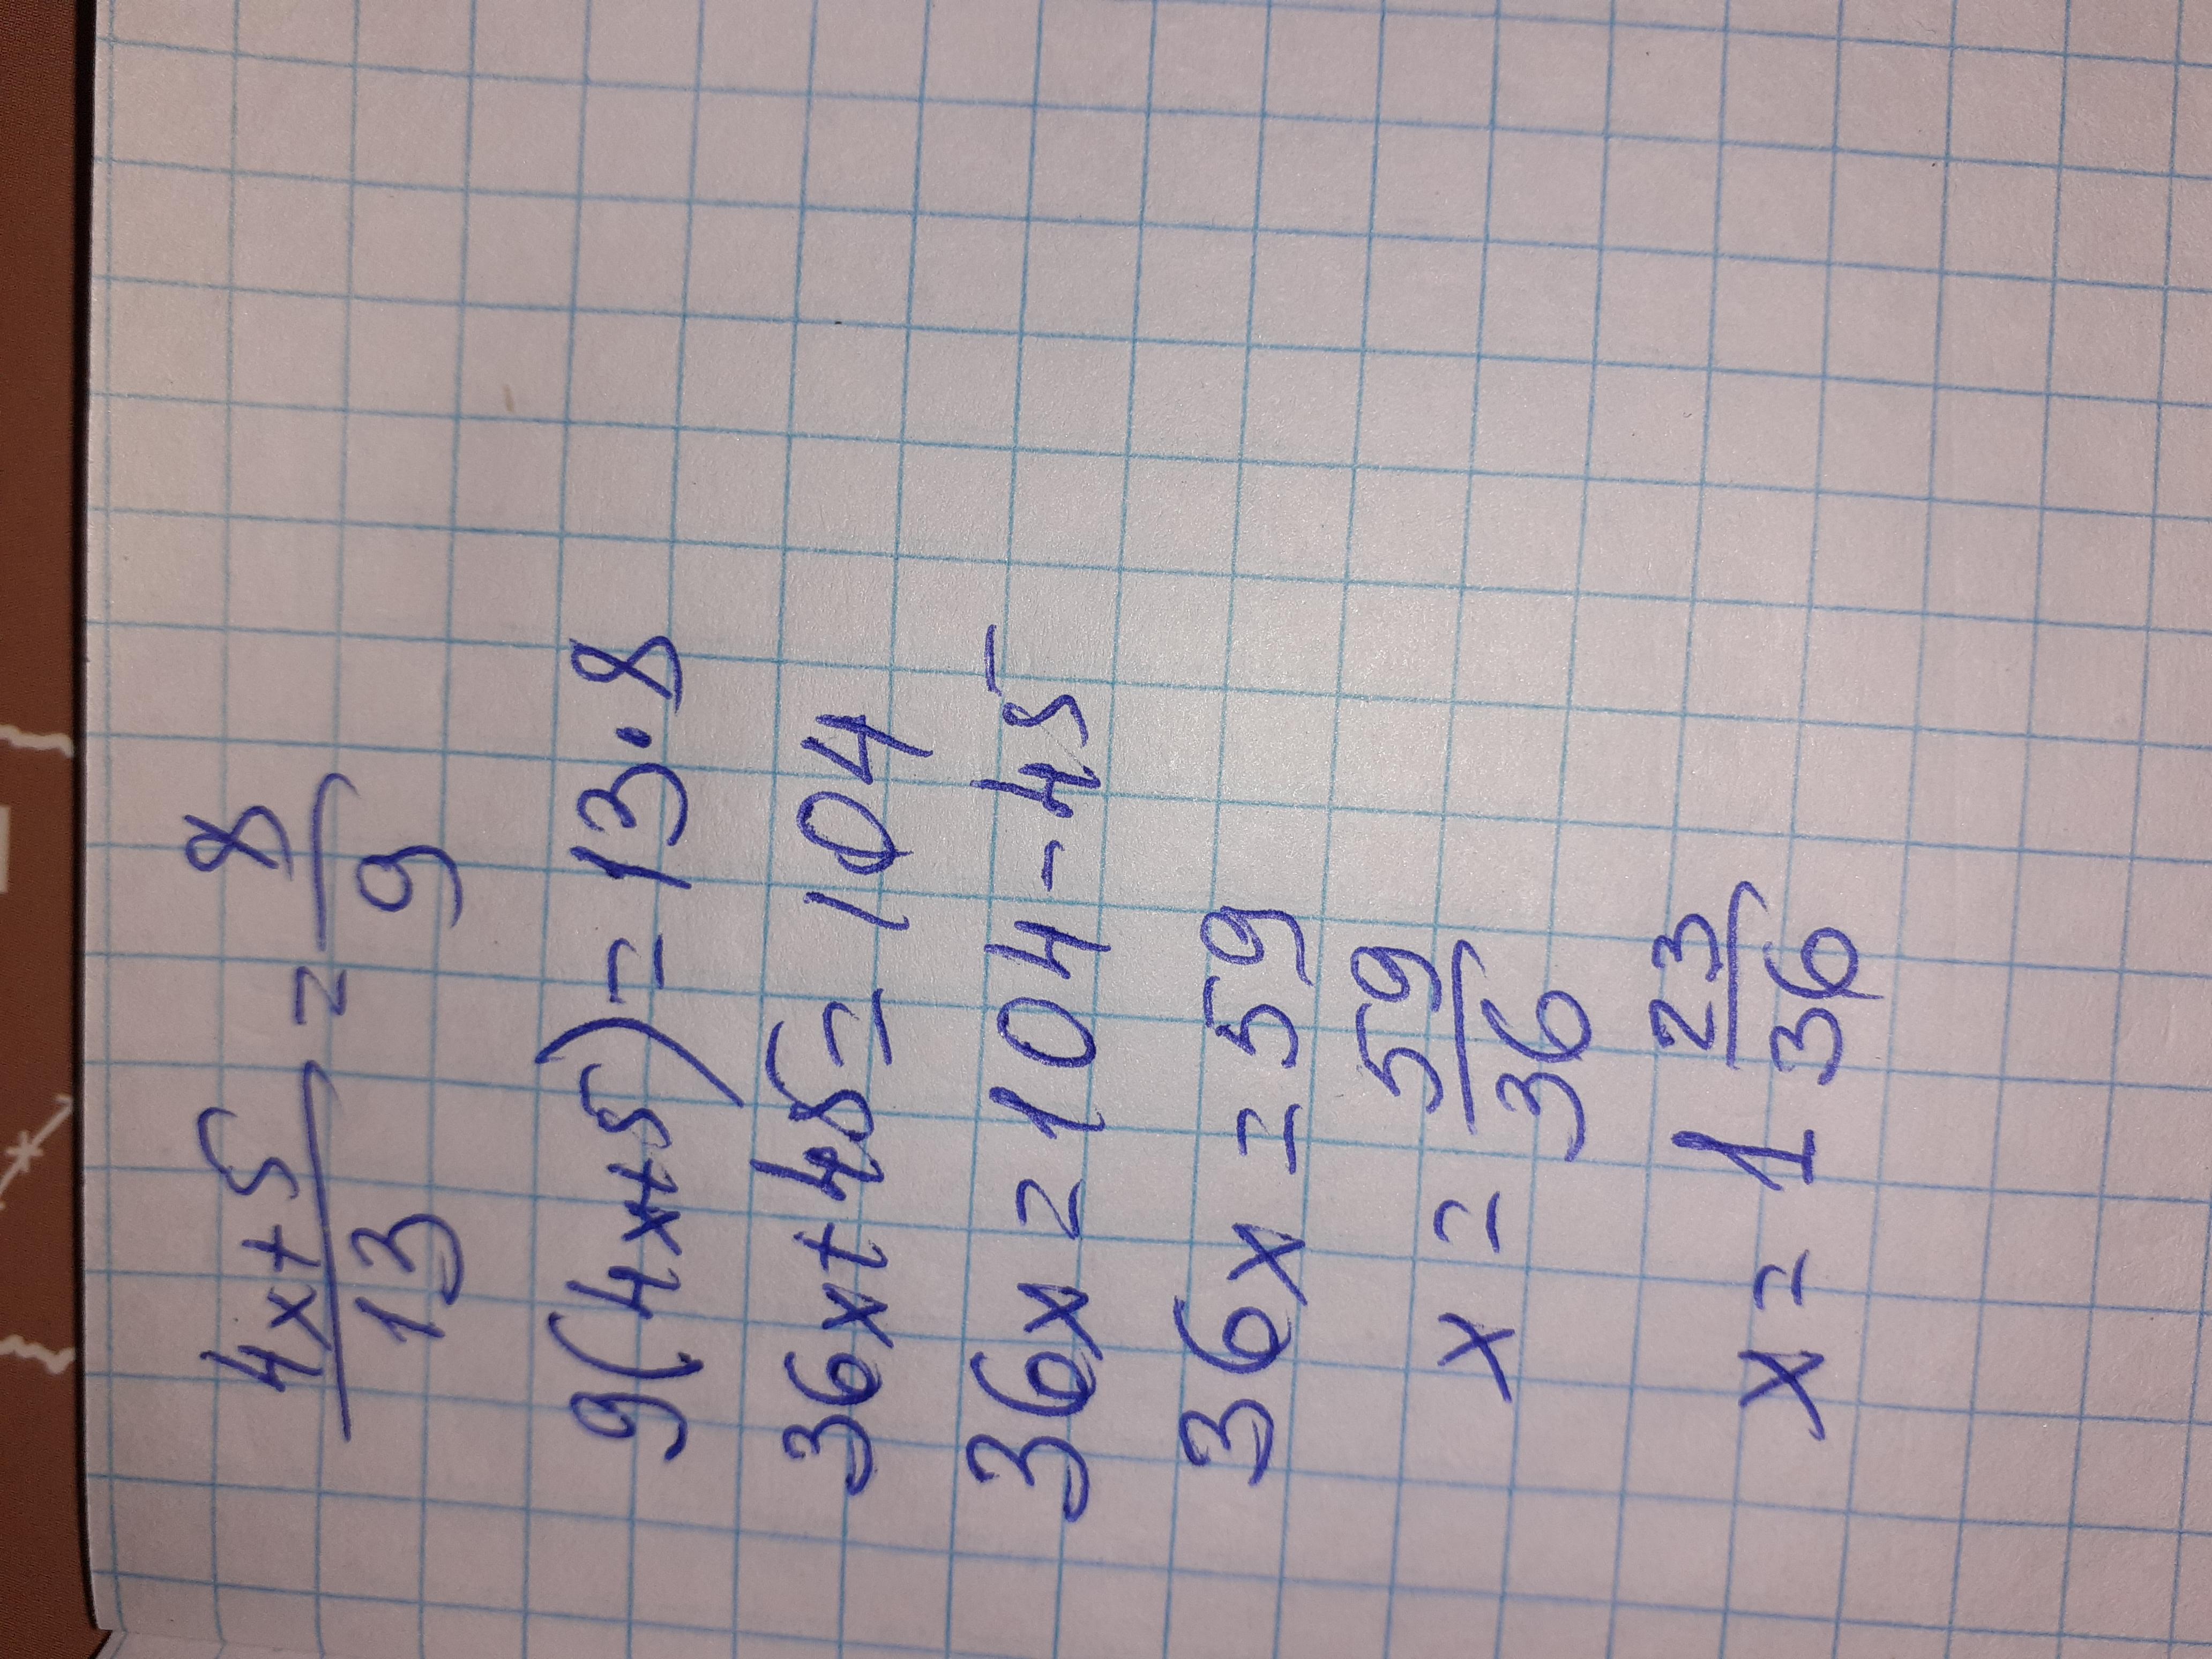 (4x+5)/13 = 8/9
9(4x+5)=13·8
36x+45=104
36x=104-45
36x=59
x=59/36
x=1 23/36